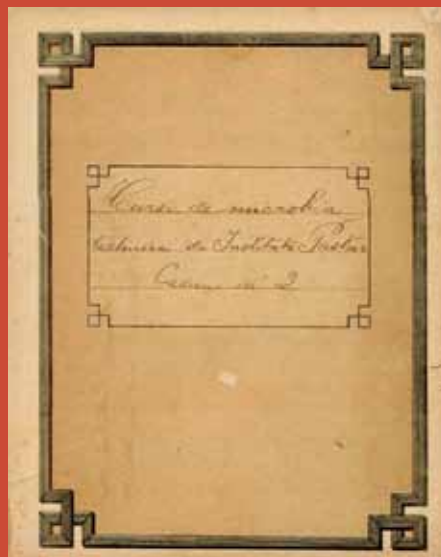 Curso de microbia
technica do Instituto Pasteur
Caderno nº 2